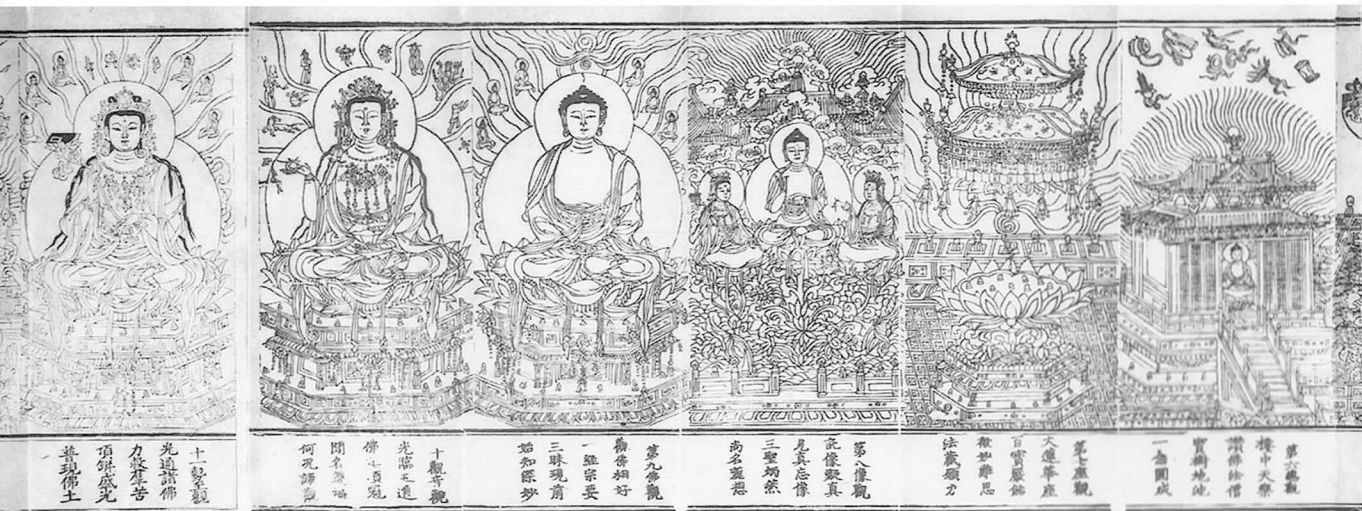 第六總觀
樓中天樂
讚佛法僧
寶樹地池
一念圓成
第七座觀
大蓮華座
百寶嚴飾
微妙難思
法藏願力
第八像觀
託像觀真
見真忘像
三聖炳然
尚名麁想
第九佛觀
觀佛相好
一經宗要
三昧現前
始知深妙
十觀音觀
光臨五道
佛化頂冠
聞名獲福
何況諦觀
十一勢至觀
光遍諸佛
力救羣苦
頂缾盛光
普現佛土